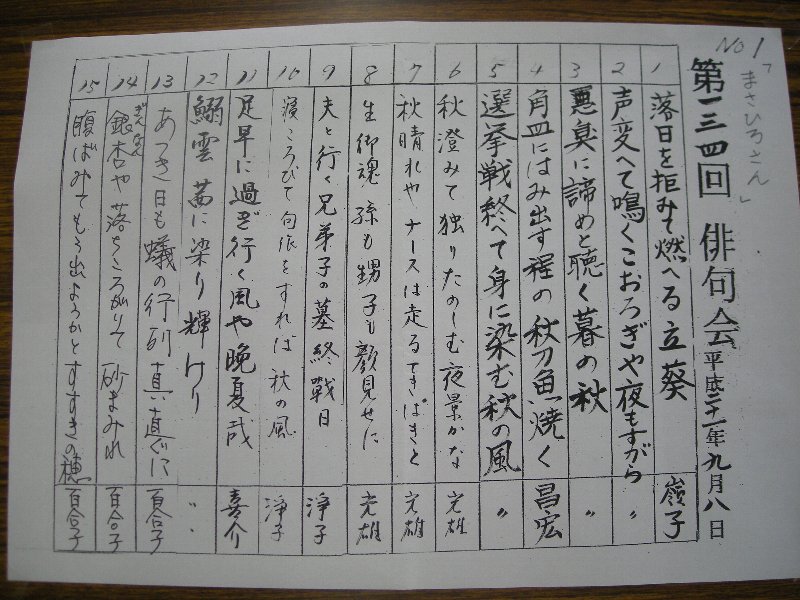 No 1
「まさひろさん」
第一三四回 俳句会 平成二十一年九月八日
1 落日を拒みて燃へる立葵 嶺子
2 声変へて鳴くこおろぎや夜もすがら 〃
3 悪臭に諦めと聴く暮の秋 〃
4 角皿にはみ出す程の秋刀魚焼く 昌宏
5 選挙戦終へて身に染む秋の風 〃
6 秋澄みて独りたのしむ夜景かな 光雄
7 秋晴れやナースは走るてきぱきと 光雄
8 生御魂孫も甥子も顔見せに 光雄
9 夫と行く兄弟子の墓終戦日 浄子
10 寝ころびて句作をすれば秋の風 浄子
11 足早に過ぎ行く風や晩夏哉 喜介
12 鰯雲茜に染り輝けり 〃
13 あつき日も蟻の行列真直ぐに 百合子
14 銀杏や落ちころがりて砂まみれ 百合子
ぎんなん
15 腹ばみてもう出ようかとすすきの穂 百合子